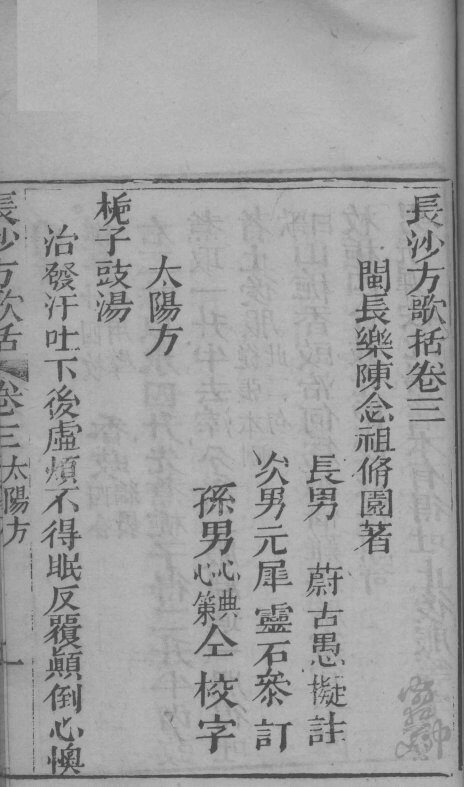 長沙方歌括卷三
閩長樂陳念祖脩園著
長男 蔚古愚擬註
次男元犀靈石叅訂
孫男心典心蘭仝校字
太陽方
梔子豉湯
治發汗吐下後虛煩不得眠反覆顛倒心懊
長沙方歌括 卷三太陽方 一